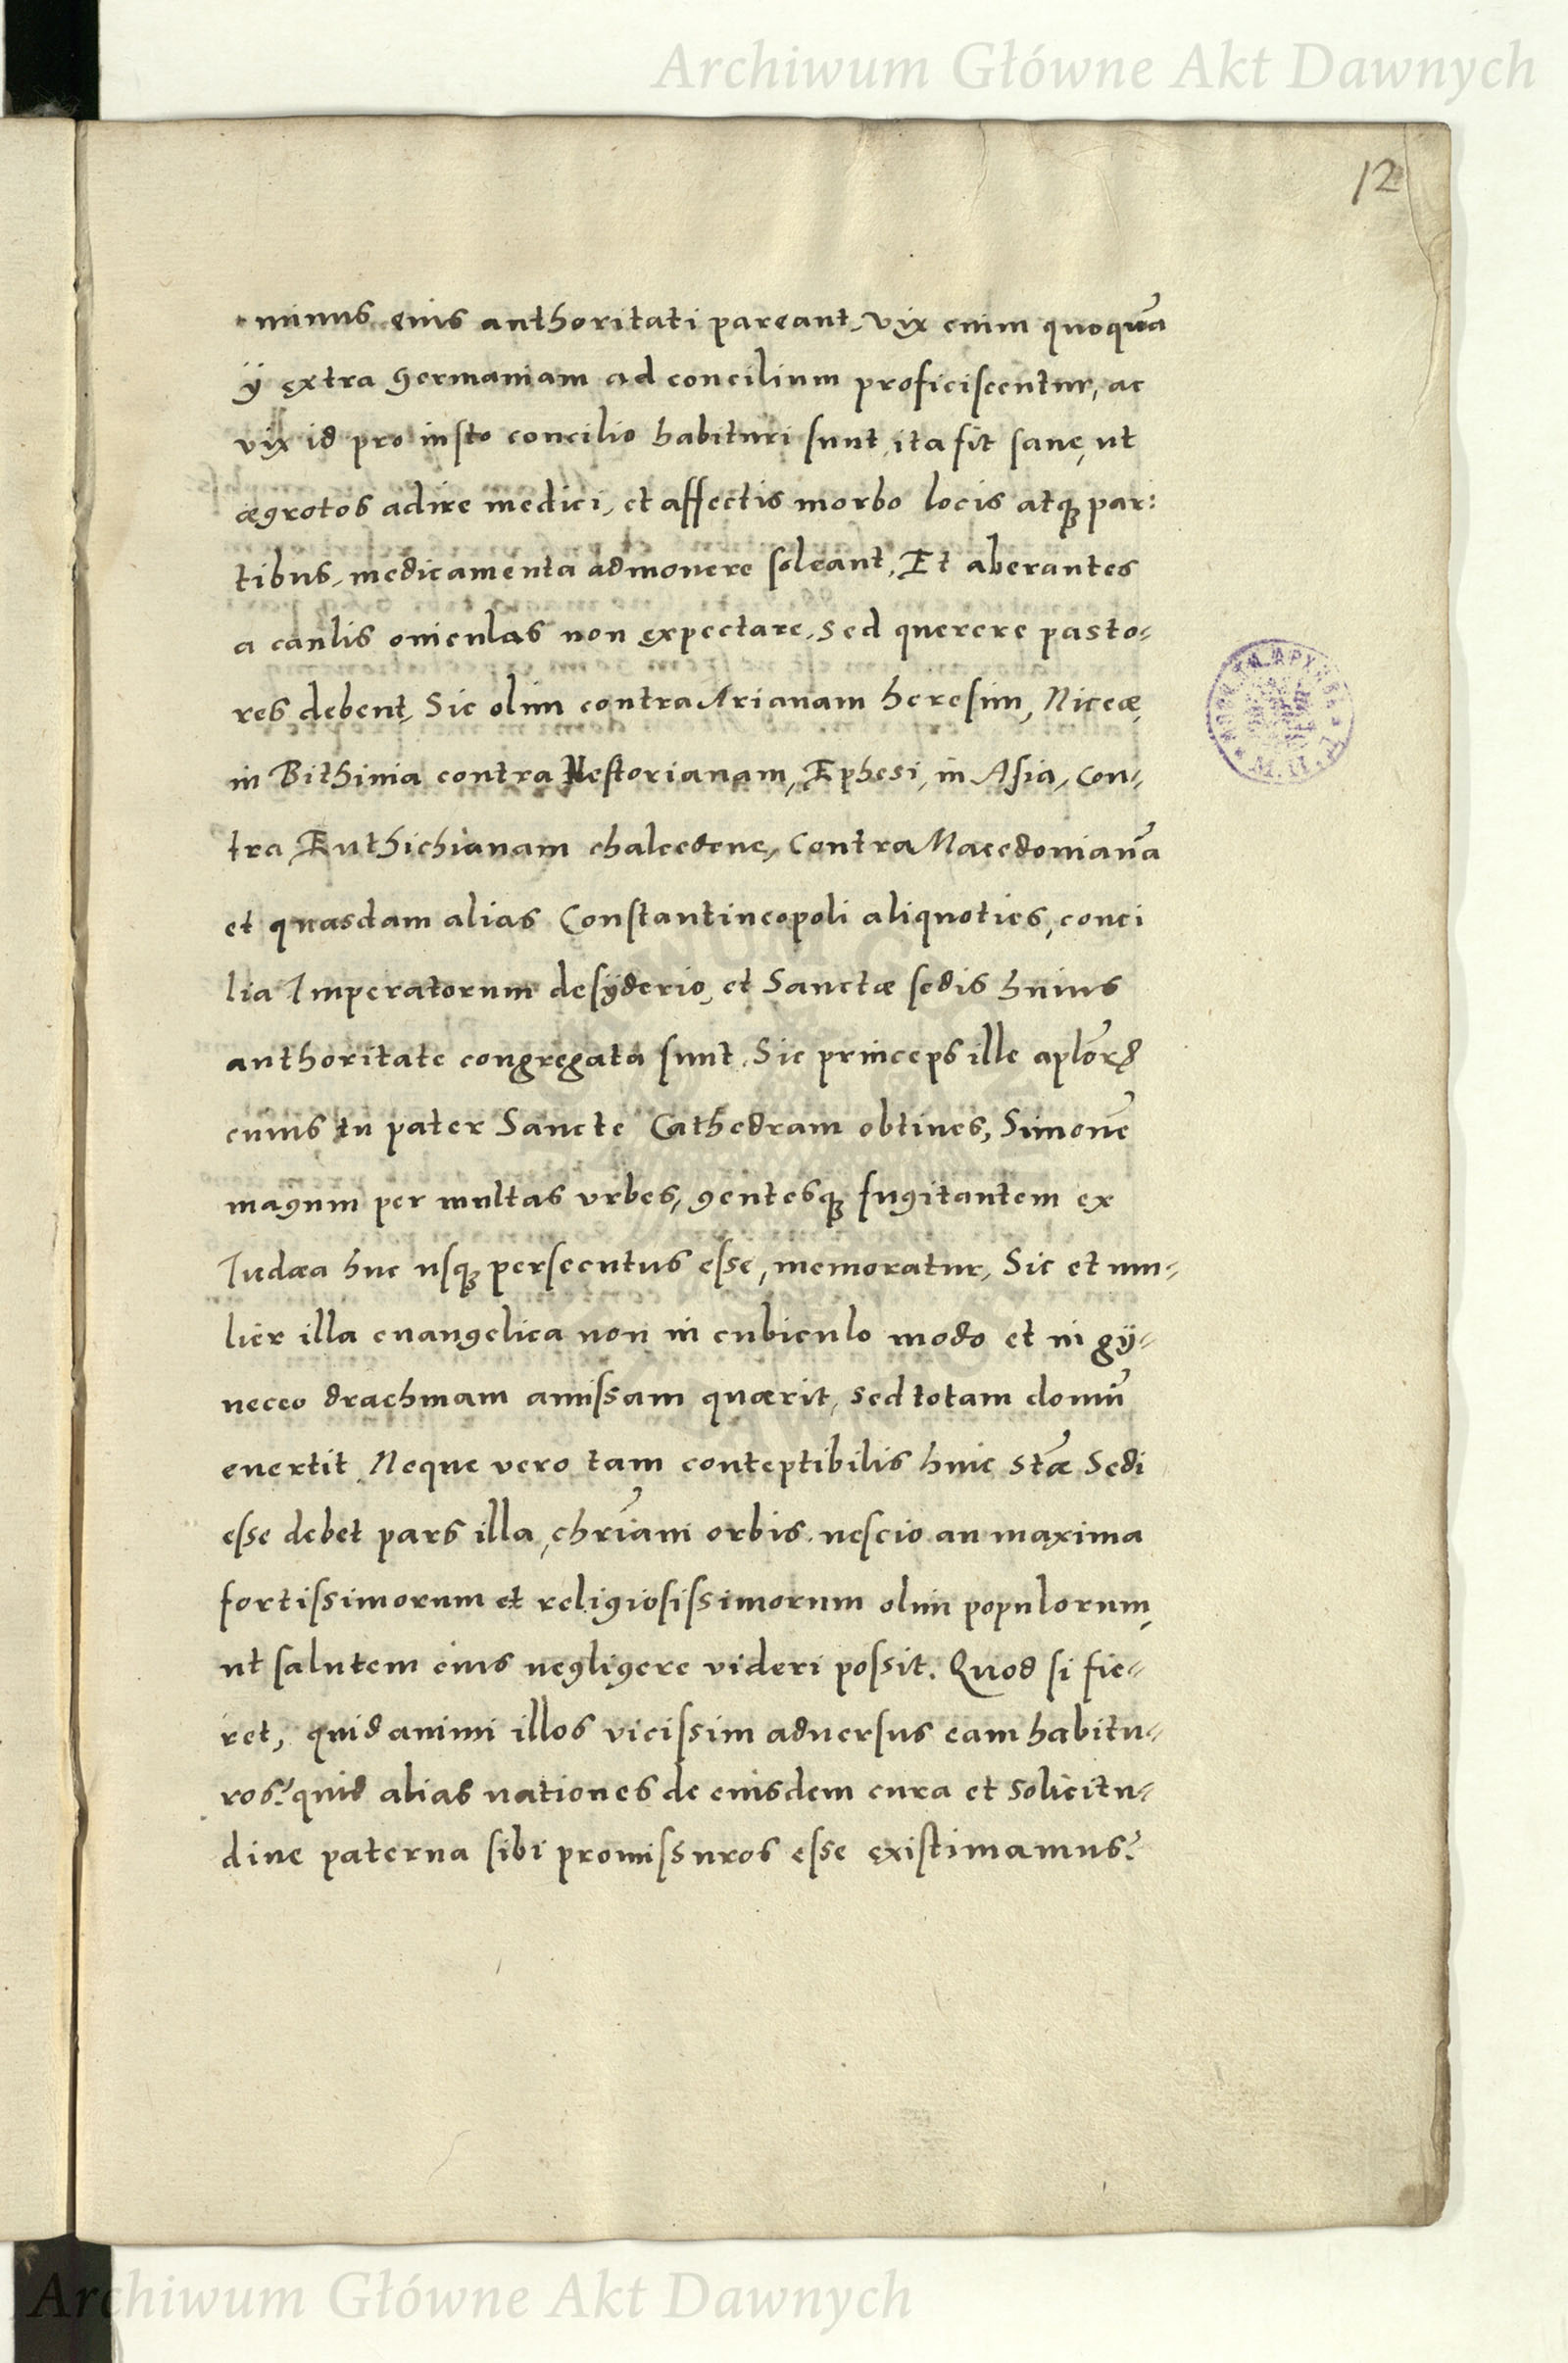 Archiwum Główne Akt Dawnych
12
minus eius authoritati pareant, vix enim quoquã
ij extra germaniam ad concilium proficiscentur, ac
vix id pro iusto concilio habituri sunt, ita fit sane, ut
ægrotos adire medici, et affectis morbo locis atq; par:
tibus, medicamenta admouere soleant, Et aberantes
a caulis ouiculas non expectare, sed querere pasto-
res debent, Sic olim contra Arianam heresim, Niceæ,
in Bithinia contra Nestorianam, Ephesi, in Asia, Con-
tra Euthichianam chalcedone, Contra Macedonianã
et quasdam alias Constantineopoli aliquoties, conci
lia Imperatorum desyderio, et Sanctæ sedis huius
authoritate congregata sunt. Sic princeps ille aplõrꝫ
cuius tu pater Sancte Cathedram obtines, Simonẽ
magum per multas vrbes, gentesq; fugitantem ex
Iudæa huc usq; persecutus esse, memoratur, Sic et mu-
lier illa euangelica non in cubiculo modo et in gÿ-
neceo drachmam amissam quærit, sed totam domũ
euertit, Neque vero tam conteptibilis huic stæ̃ Sedi
esse debet pars illa, chrĩani orbis. nescio an maxima
fortissimorum et religiosissimorum olim populorum,
ut salutem eius negligere videri possit. Quod si fie-
ret, quid animi illos vicissim aduersus eam habitu-
ros? quid alias nationes de eiusdem cura et solicitu-
dine paterna sibi promissuros esse existimamus?
Archiwum Główne Akt Dawnych